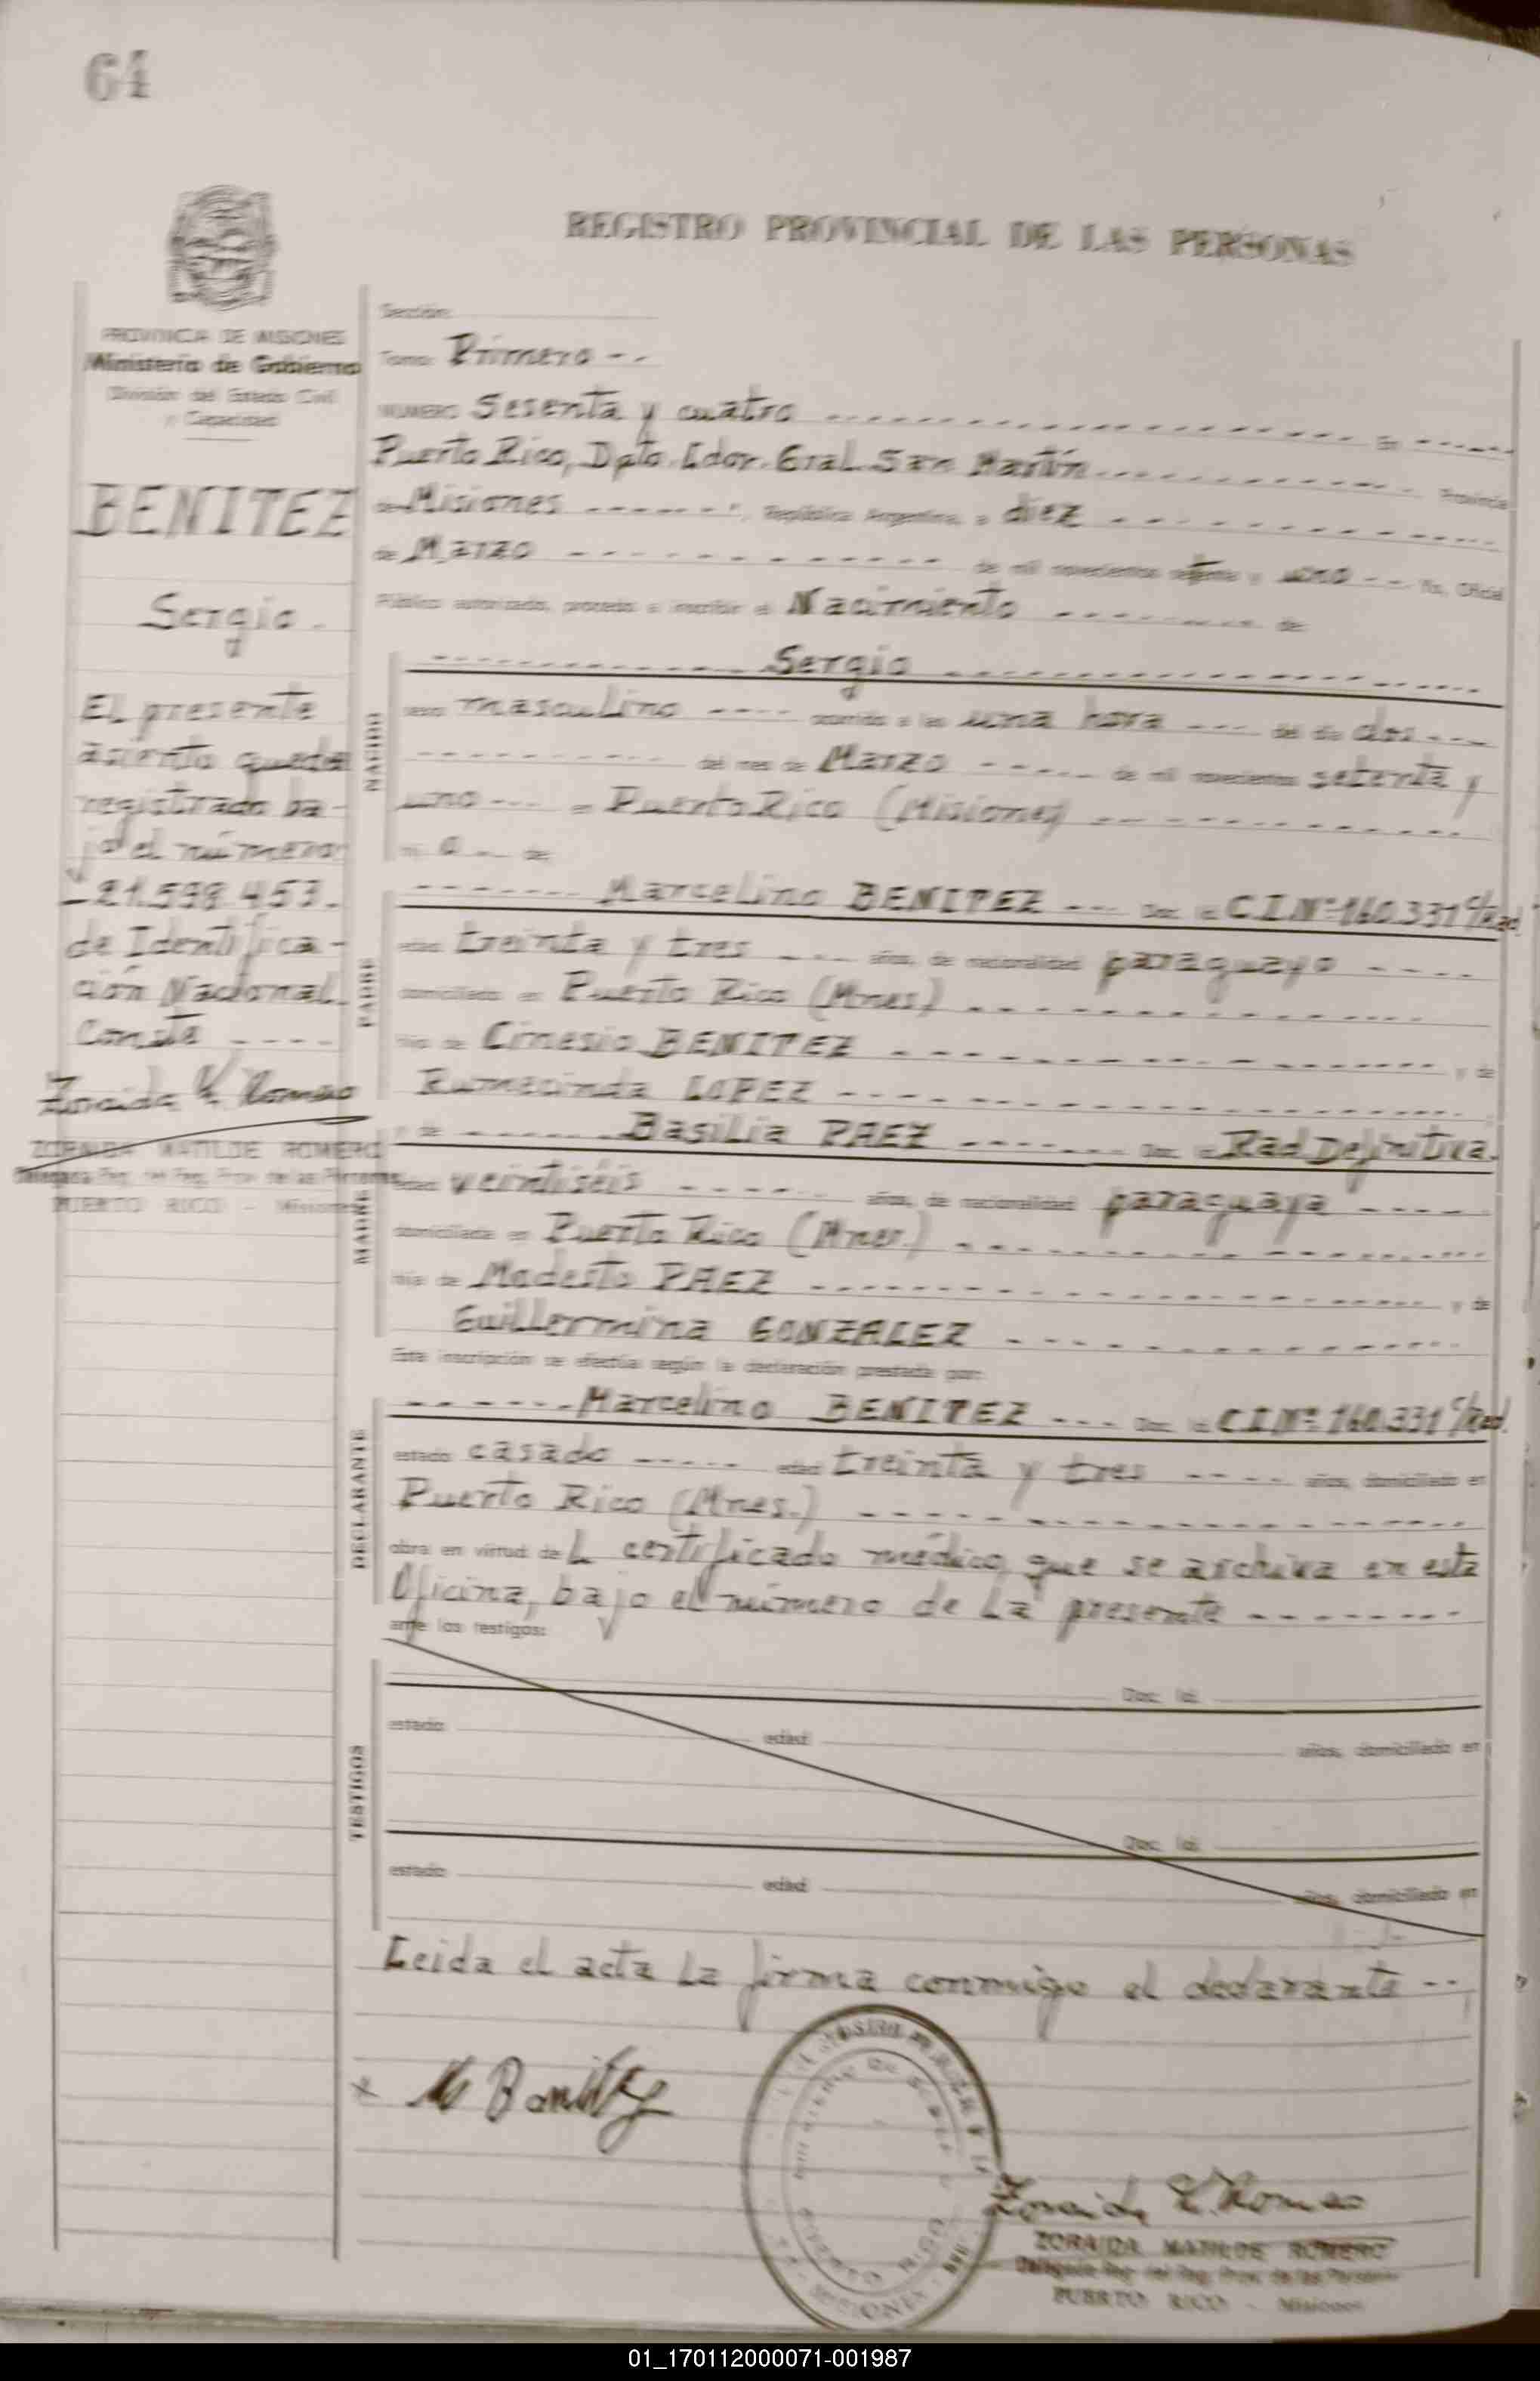 64
REGISTRO PROVINCIAL DE LAS PERSONAS
PROVINCIA DE MISIONES
Ministerio de Gobierno
División del Estado Civil
y Capacidad
BENITEZ
Sergio.
El presente
asiento queda
registrado ba-
jo el número
-21.598.453.-
de Identifica-
ción Nacional.
Conste ----
Zoraida M. Romero
ZORAIDA MATILDE ROMERO
Delegada Reg. del Reg. Prov. de las Personas
PUERTO RICO - Misiones
Sección
Tomo: Primero --
NUMERO Sesenta y cuatro ---- En ----
Puerto Rico, Dpto. Ldor. Gral. San Martín ---- Provincia
de Misiones ----, República Argentina, a diez ----
de Marzo ---- de mil novecientos setenta y uno --- Yo, Oficial
Público autorizado, procedo a inscribir el Nacimiento ---- de:
NACIDO
---- Sergio ----
sexo masculino ---- ocurrido a las una hora --- del día dos ---
---- del mes de Marzo ---- de mil novecientos setenta y
uno --- en Puerto Rico (Misiones) ----
hij o -- de:
PADRE
---- Marcelino BENITEZ --- Doc. Id. C.I.Nº 160.331 c/Rad.
edad treinta y tres --- años, de nacionalidad paraguayo ----
domiciliado en Puerto Rico (Mnes) ----
hijo de Cinesio BENITEZ ---- y de
Rumecinda LOPEZ ----
MADRE
y de ---- Basilia PAEZ ---- Doc. Id. Rad Definitiva.
edad veintiséis ---- años, de nacionalidad paraguaya ----
domiciliada en Puerto Rico (Mnes.) ----
hija de Modesto PAEZ ---- y de
Guillermina GONZALEZ ----
Esta inscripción se efectúa según la declaración prestada por:
DECLARANTE
---- Marcelino BENITEZ --- Doc. Id. C.I.Nº 160.331 c/Rad.
estado casado ---- edad treinta y tres ---- años, domiciliado en
Puerto Rico (Mnes.) ----
obra en virtud de L certificado médico, que se archiva en esta
Oficina, bajo el número de la presente ----
ante los testigos:
TESTIGOS
Doc. Id.
estado edad años, domiciliado en
Doc. Id.
estado edad años, domiciliado en
Leida el acta la firma conmigo el declarante --
x M Benitez
PUERTO RICO
MISIONES
Zoraida M. Romero
ZORAIDA MATILDE ROMERO
Delegada Reg. del Reg. Prov. de las Personas
PUERTO RICO - Misiones
01_170112000071-001987